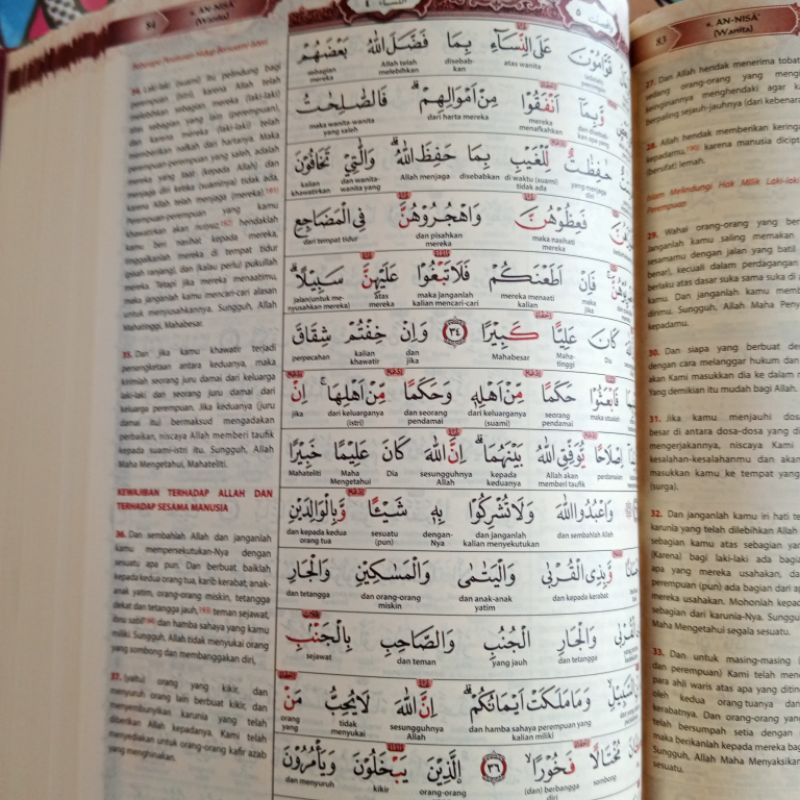 84
4. AN-NISĀ'
(Wanita)
34. Laki-laki (suami) itu pelindung bagi
perempuan (istri), karena Allah telah
melebihkan sebagian mereka (laki-laki)
atas sebagian yang lain (perempuan),
dan karena mereka (laki-laki) telah
memberikan nafkah dari hartanya. Maka
perempuan-perempuan yang saleh, adalah
mereka yang taat (kepada Allah) dan
menjaga diri ketika (suaminya) tidak ada,
karena Allah telah menjaga (mereka).
Perempuan-perempuan yang kamu
khawatirkan akan nusyuz, hendaklah
kamu beri nasihat kepada mereka,
tinggalkanlah mereka di tempat tidur
(pisah ranjang), dan (kalau perlu) pukullah
mereka. Tetapi jika mereka menaatimu,
maka janganlah kamu mencari-cari alasan
untuk menyusahkannya. Sungguh, Allah
Mahatinggi, Mahabesar.
35. Dan jika kamu khawatir terjadi
persengketaan antara keduanya, maka
kirimlah seorang juru damai dari keluarga
laki-laki dan seorang juru damai dari
keluarga perempuan. Jika keduanya (juru
damai itu) bermaksud mengadakan
perbaikan, niscaya Allah memberi taufik
kepada suami-istri itu. Sungguh, Allah
Maha Mengetahui, Mahateliti.
KEWAJIBAN TERHADAP ALLAH DAN
TERHADAP SESAMA MANUSIA
36. Dan sembahlah Allah dan janganlah
kamu mempersekutukan-Nya dengan
sesuatu apa pun. Dan berbuat baiklah
kepada kedua orang tua, karib kerabat, anak-
anak yatim, orang-orang miskin, tetangga
dekat dan tetangga jauh, teman sejawat,
ibnu sabil dan hamba sahaya yang kamu
miliki. Sungguh, Allah tidak menyukai orang
yang sombong dan membanggakan diri,
37. (yaitu) orang yang kikir, dan
menyuruh orang lain berbuat kikir, dan
menyembunyikan karunia yang telah
diberikan Allah kepadanya. Kami telah
menyediakan untuk orang-orang kafir azab
yang menghinakan.
عَلَى النِّسَاۤءِ بِمَا فَضَّلَ اللّٰهُ بَعْضَهُمْ
sebagian mereka Allah telah melebihkan disebab-kan atas wanita
وَّبِمَآ اَنْفَقُوْا مِنْ اَمْوَالِهِمْ ۗ فَالصّٰلِحٰتُ
maka wanita-wanita yang saleh dari harta mereka mereka menafkahkan
حٰفِظٰتٌ لِّلْغَيْبِ بِمَا حَفِظَ اللّٰهُ ۗ وَالّٰتِيْ تَخَافُوْنَ
kalian khawatirkan dan wanita-wanita yang Allah menjaga disebabkan di waktu (suami) tidak ada yang menjaga diri
فَعِظُوْهُنَّ وَاهْجُرُوْهُنَّ فِى الْمَضَاجِعِ
dari tempat tidur dan pisahkan mereka maka nasihati mereka
فَاِنْ اَطَعْنَكُمْ فَلَا تَبْغُوْا عَلَيْهِنَّ سَبِيْلًا ۗ
jalan(untuk me-nyusahkan mereka) atas mereka maka janganlah kalian mencari-cari mereka menaati kalian maka jika
كَانَ عَلِيًّا كَبِيْرًا ٣٤ وَاِنْ خِفْتُمْ شِقَاقَ
perpecahan kalian khawatir dan jika Mahabesar Maha-tinggi Dia
فَابْعَثُوْا حَكَمًا مِّنْ اَهْلِهٖ وَحَكَمًا مِّنْ اَهْلِهَا ۚ اِنْ
jika dari keluarganya (istri) dan seorang pendamai dari keluarganya (suami) seorang pendamai maka utuslah
اِصْلَاحًا يُّوَفِّقِ اللّٰهُ بَيْنَهُمَا ۗ اِنَّ اللّٰهَ كَانَ عَلِيْمًا خَبِيْرًا
Mahateliti Maha Mengetahui Dia sesungguhnya Allah kepada keduanya Allah akan memberi taufik perdamaian
وَاعْبُدُوا اللّٰهَ وَلَا تُشْرِكُوْا بِهٖ شَيْـًٔا وَّبِالْوَالِدَيْنِ
dan kepada kedua orang tua sesuatu (pun) dengan-Nya dan janganlah kalian menyekutukan dan sembahlah Allah
وَّبِذِى الْقُرْبٰى وَالْيَتٰمٰى وَالْمَسٰكِيْنِ وَالْجَارِ
dan tetangga dan orang-orang miskin dan anak-anak yatim dan kepada kerabat
وَالْجَارِ الْجُنُبِ وَالصَّاحِبِ بِالْجَنْۢبِ
sejawat dan teman yang jauh dan tetangga
وَمَا مَلَكَتْ اَيْمَانُكُمْ ۗ اِنَّ اللّٰهَ لَا يُحِبُّ مَنْ
orang yang tidak menyukai sesungguhnya Allah dan hamba sahaya perempuan yang kalian miliki
مُخْتَالًا فَخُوْرًا ٣٦ الَّذِيْنَ يَبْخَلُوْنَ وَيَأْمُرُوْنَ
dan menyuruh kikir orang-orang (dan) berbangga diri sombong
83
4. AN-NISĀ'
(Wanita)
27. Dan Allah hendak menerima tobat
sedang orang-orang yang
keinginannya menghendaki agar
berpaling sejauh-jauhnya (dari kebenar
28. Allah hendak memberikan keringan
kepadamu, karena manusia dicipt
(berufat) lemah.
Islam Melindungi Hak Milik Laki-lak
Perempuan
29. Wahai orang-orang yang ber
Janganlah kamu saling memakan
sesamamu dengan jalan yang batil
benar), kecuali dalam perdagangan
berlaku atas dasar suka sama suka di
kamu. Dan janganlah kamu memb
dirimu. Sungguh, Allah Maha Peny
kepadamu.
30. Dan siapa yang berbuat de
dengan cara melanggar hukum dan
akan Kami masukkan dia ke dalam
Yang demikian itu mudah bagi Allah.
31. Jika kamu menjauhi dosa
besar di antara dosa-dosa yang di
mengerjakannya, niscaya Kami
kesalahan-kesalahanmu dan akan
masukkan kamu ke tempat yang
(surga).
32. Dan janganlah kamu iri hati te
karunia yang telah dilebihkan Allah
sebagian kamu atas sebagian yan
(Karena) bagi laki-laki ada bagia
apa yang mereka usahakan, da
perempuan (pun) ada bagian dari ap
mereka usahakan. Mohonlah kepad
sebagian dari karunia-Nya. Sunggu
Maha Mengetahui segala sesuatu.
33. Dan untuk masing-masing
dan perempuan) Kami telah men
para ahli waris atas apa yang diting
oleh kedua orang tuanya dan
kerabatnya. Dan orang-orang yang
telah bersumpah setia dengan
maka berikanlah kepada mereka bag
Sungguh, Allah Maha Menyaksikan
sesuatu.